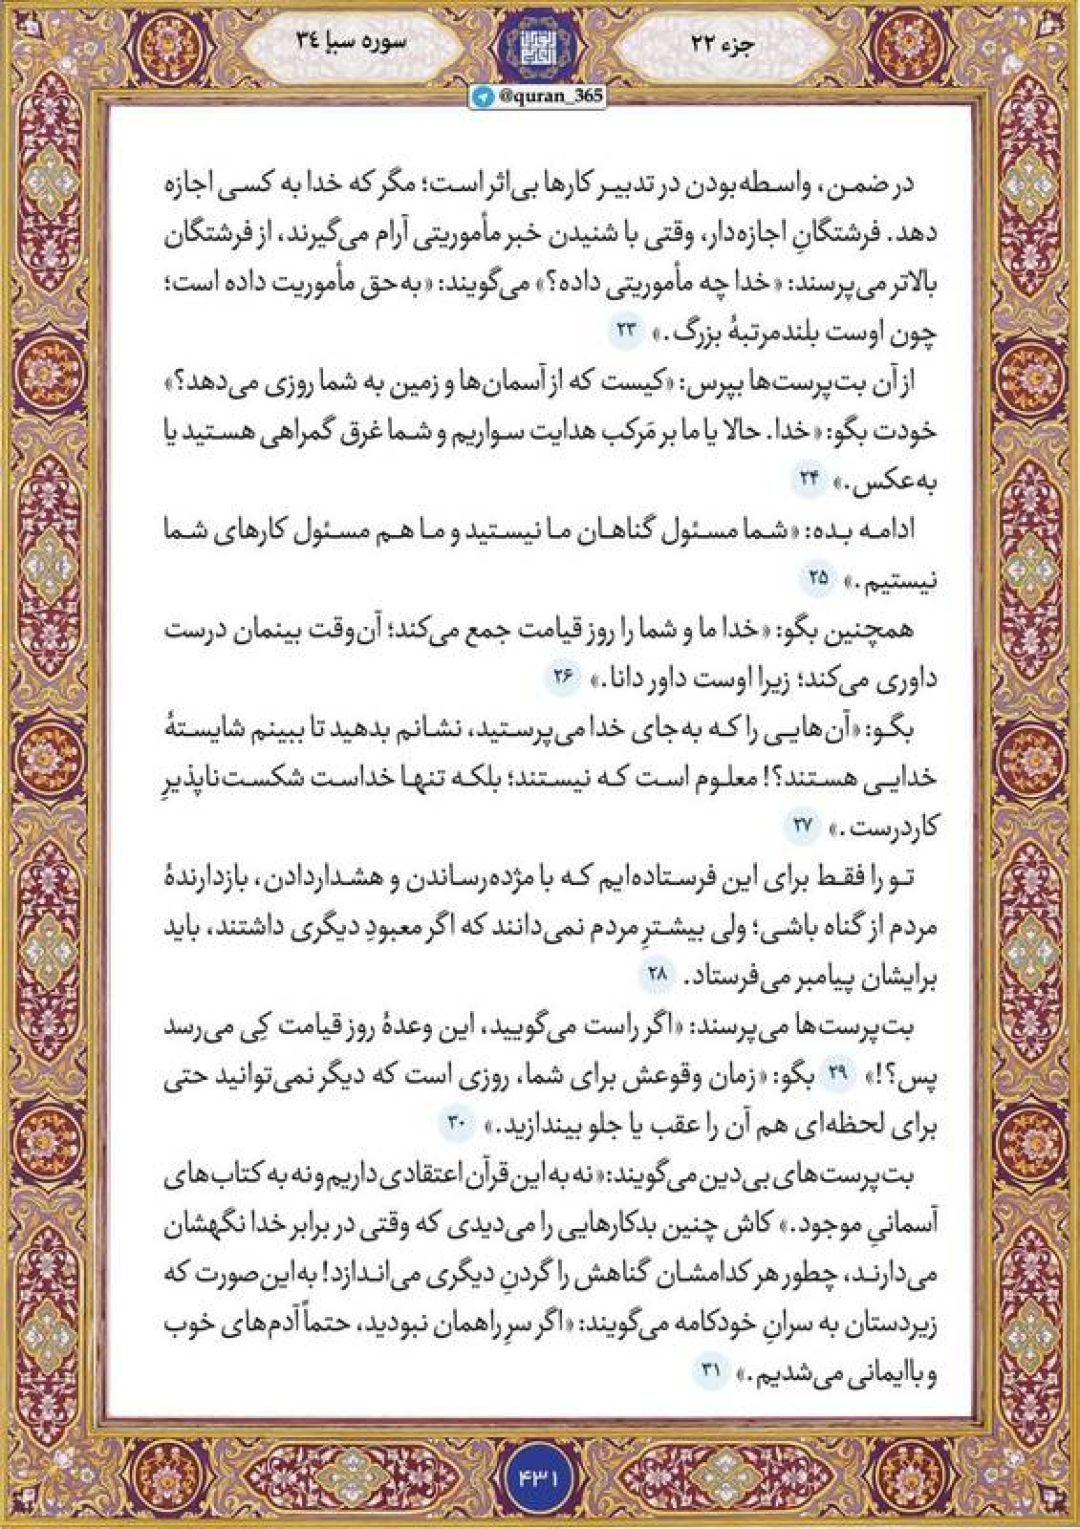 جزء ۲۲
سوره سبإ ۳۴
@quran_365
در ضمن، واسطه‌بودن در تدبیر کارها بی‌اثر است؛ مگر که خدا به کسی اجازه
دهد. فرشتگانِ اجازه‌دار، وقتی با شنیدن خبر مأموریتی آرام می‌گیرند، از فرشتگان
بالاتر می‌پرسند: «خدا چه مأموریتی داده؟» می‌گویند: «به‌حق مأموریت داده است؛
چون اوست بلندمرتبهٔ بزرگ.» ۲۳
از آن بت‌پرست‌ها بپرس: «کیست که از آسمان‌ها و زمین به شما روزی می‌دهد؟»
خودت بگو: «خدا. حالا یا ما بر مَرکب هدایت سواریم و شما غرق گمراهی هستید یا
به‌عکس.» ۲۴
ادامه بده: «شما مسئول گناهان ما نیستید و ما هم مسئول کارهای شما
نیستیم.» ۲۵
همچنین بگو: «خدا ما و شما را روز قیامت جمع می‌کند؛ آن‌وقت بینمان درست
داوری می‌کند؛ زیرا اوست داور دانا.» ۲۶
بگو: «آن‌هایی را که به‌جای خدا می‌پرستید، نشانم بدهید تا ببینم شایستهٔ
خدایی هستند؟! معلوم است که نیستند؛ بلکه تنها خداست شکست‌ناپذیرِ
کاردرست.» ۲۷
تو را فقط برای این فرستاده‌ایم که با مژده‌رساندن و هشداردادن، بازدارندهٔ
مردم از گناه باشی؛ ولی بیشترِ مردم نمی‌دانند که اگر معبودِ دیگری داشتند، باید
برایشان پیامبر می‌فرستاد. ۲۸
بت‌پرست‌ها می‌پرسند: «اگر راست می‌گویید، این وعدهٔ روز قیامت کِی می‌رسد
پس؟!» ۲۹ بگو: «زمان وقوعش برای شما، روزی است که دیگر نمی‌توانید حتی
برای لحظه‌ای هم آن را عقب یا جلو بیندازید.» ۳۰
بت‌پرست‌های بی‌دین می‌گویند: «نه به این قرآن اعتقادی داریم و نه به کتاب‌های
آسمانیِ موجود.» کاش چنین بدکارهایی را می‌دیدی که وقتی در برابر خدا نگهشان
می‌دارند، چطور هر کدامشان گناهش را گردنِ دیگری می‌اندازد! به‌این‌صورت که
زیردستان به سرانِ خودکامه می‌گویند: «اگر سرِ راهمان نبودید، حتماً آدم‌های خوب
و باایمانی می‌شدیم.» ۳۱
۴۳۱